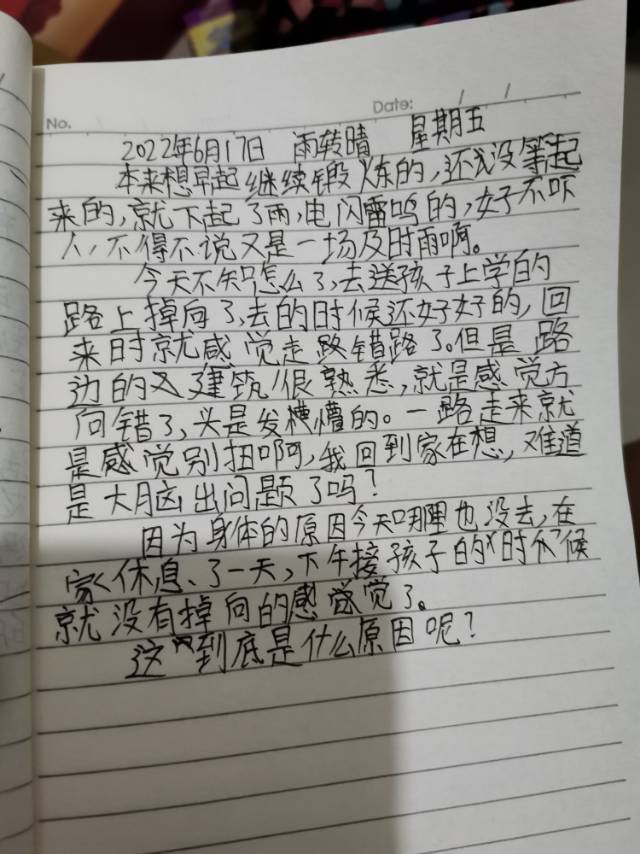 No.
Date: / /
2022年6月17日 雨转晴 星期五
本来想早起继续锻炼的,还没等起
来的,就下起了雨,电闪雷鸣的,好不吓
人,不得不说又是一场及时雨啊。
今天不知怎么了,去送孩子上学的
路上掉向了,去的时候还好好的,回
来时就感觉走错路了。但是路
边的建筑很熟悉,就是感觉方
向错了,头是发懵懵的。一路走来就
是感觉别扭啊,我回到家在想,难道
是大脑出问题了吗?
因为身体的原因今天哪里也没去,在
家休息、了一天,下午接孩子的时候
就没有掉向的感觉了。
这到底是什么原因呢?